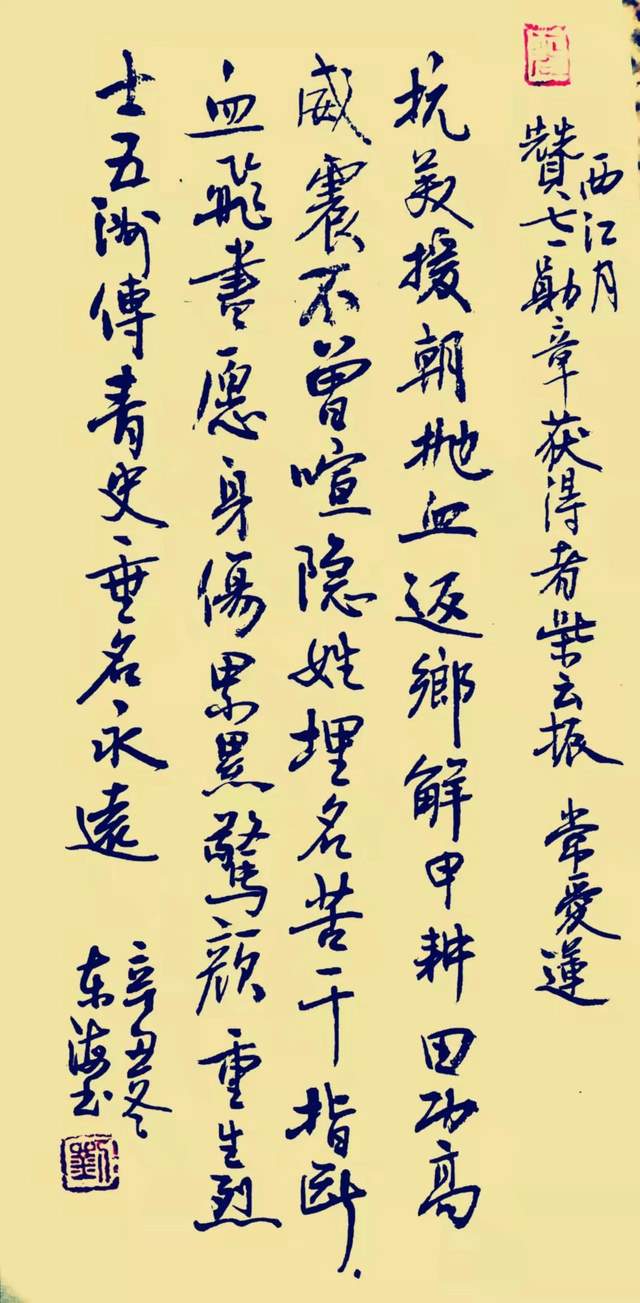 西江月
贊七一勋章获得者柴云振 常愛蓮
抗美援朝抛血返鄉解甲耕田功高
威震不曾喧隐姓埋名苦干指断
血飛書愿身傷累累驚顔重生烈
士五洲傳青史垂名永遠
辛丑冬
东海书
劉